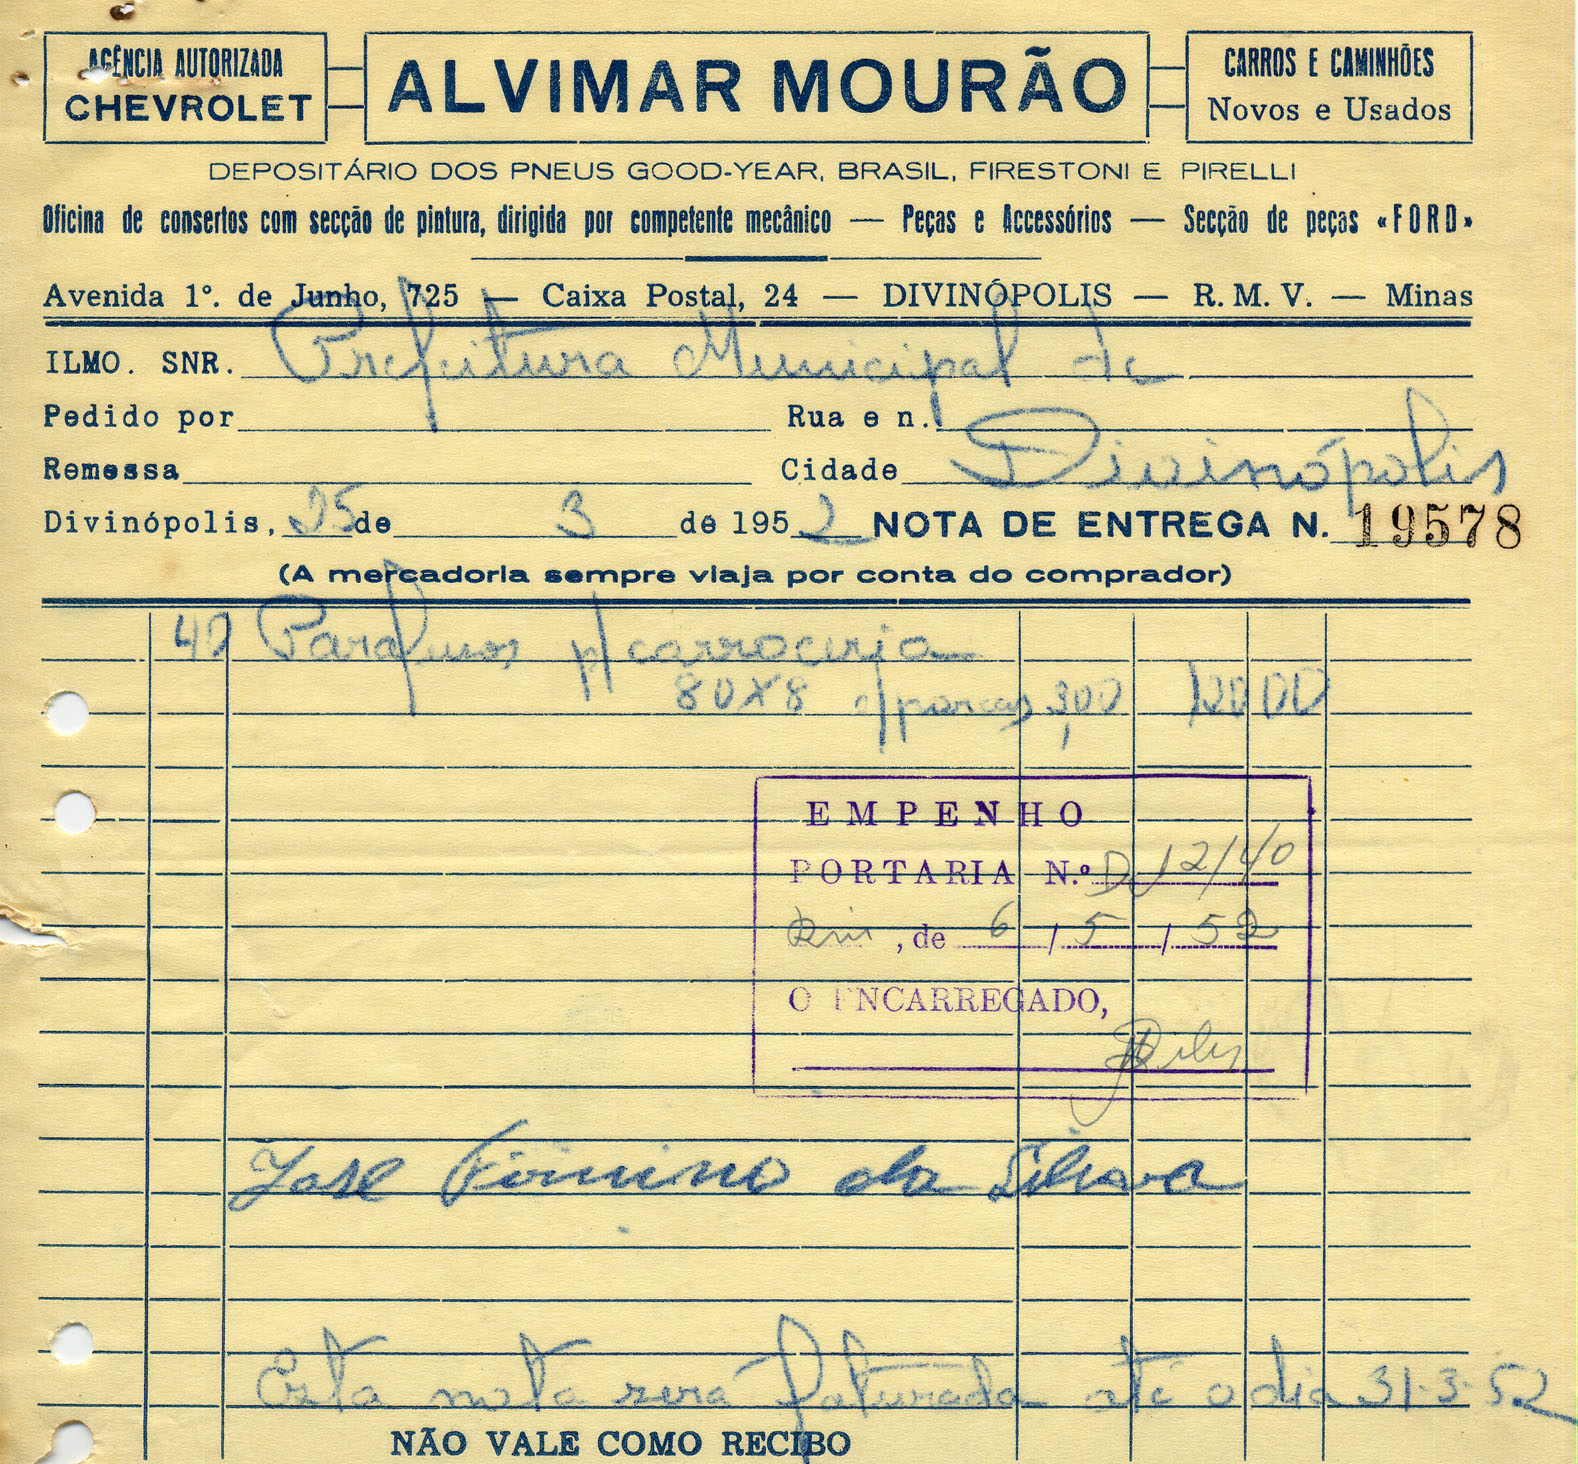 AGÊNCIA AUTORIZADA
CHEVROLET
ALVIMAR MOURÃO
CARROS E CAMINHÕES
Novos e Usados
DEPOSITÁRIO DOS PNEUS GOOD-YEAR, BRASIL, FIRESTONI E PIRELLI
Oficina de consertos com secção de pintura, dirigida por competente mecânico — Peças e Accessórios — Secção de peças «FORD»
Avenida 1º. de Junho, 725 — Caixa Postal, 24 — DIVINÓPOLIS — R. M. V. — Minas
ILMO. SNR. Prefeitura Municipal de
Pedido por Rua e n.
Remessa Cidade Divinópolis
Divinópolis, 25 de 3 de 1952 NOTA DE ENTREGA N. 19578
(A mercadoria sempre viaja por conta do comprador)
40 Parafusos p/ carroceria
80X8 c/ porcas 3,00 120 00
EMPENHO
PORTARIA N.º D. 12/40
, de 6 / 5 / 52
O ENCARREGADO,
José Firmino da Silva
Esta nota será faturada até o dia 31-3-52
NÃO VALE COMO RECIBO